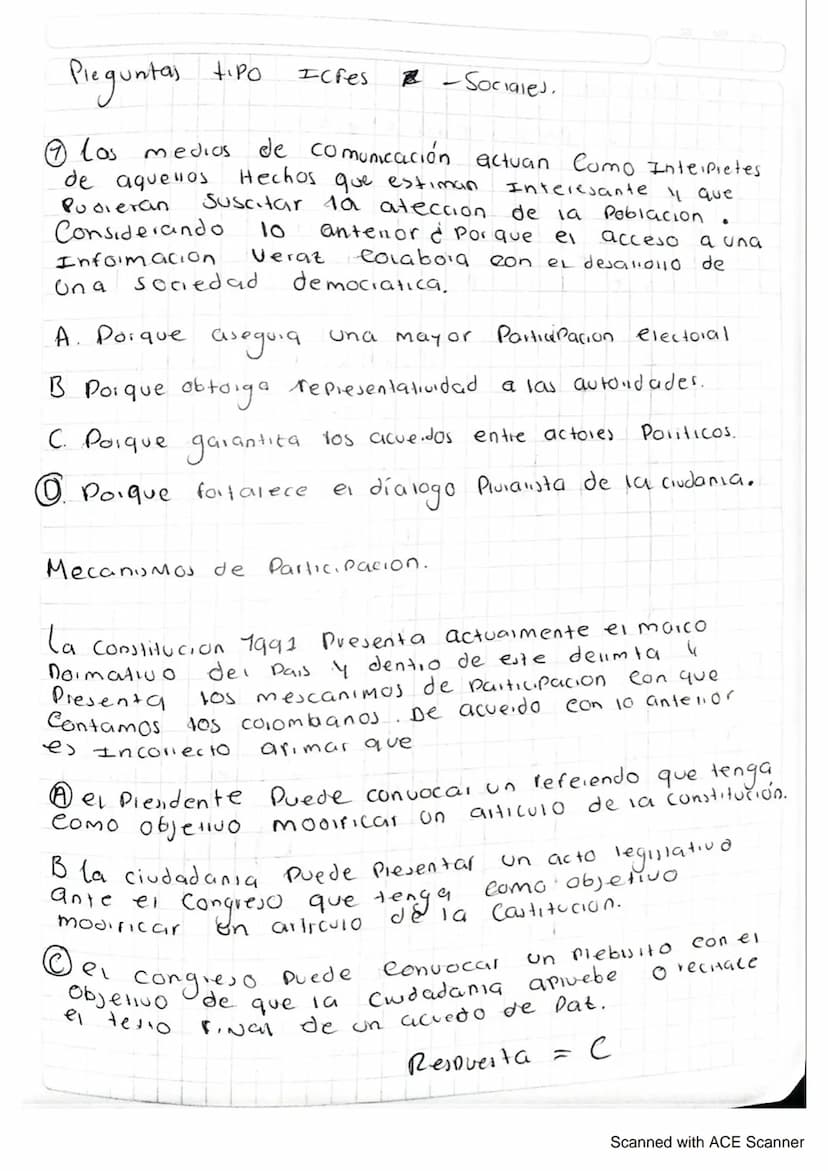 Preguntas tipo Icfes - Sociales.
⑦ Los medios de comunicación actuan como Interpretes
de aquellos Hechos que estiman Interesante y que
Pudieran suscitar la atección de la Poblacion.
Considerando lo anterior ¿ Por que el acceso a una
Informacion Verat colabora con el desarrollo de
una sociedad democratica.
A. Porque asegura una mayor Participacion electoral
B Porque obtorga representatividad a las autoridades.
C. Porque garantita los acuerdos entre actores Políticos.
D. Porque fortalece el díalogo Pluralista de la ciudania.
Mecanismos de Participacion.
La constitucion 1991 Presenta actualmente el marco
Normativo del Pais y dentro de este delimta y
Presenta los mescanimos de Participacion con que
Contamos los colombanos. De acuerdo con lo anterior
es Incorrecto afimar que
A el Presidente Puede convocar un referendo que tenga
como objetivo modificar un articulo de la constitución.
B la ciudadania puede Presentar un acto legislativo
ante el Congreso que tenga como objetivo
modificar un artrculo de la Castitucion.
C el congreso Puede convocar un Plebisito con el
Objetivo de que la ciudadania apruebe o rechace
el texto final de un acuedo de Pat.
Respuesta = C
Scanned with ACE Scanner